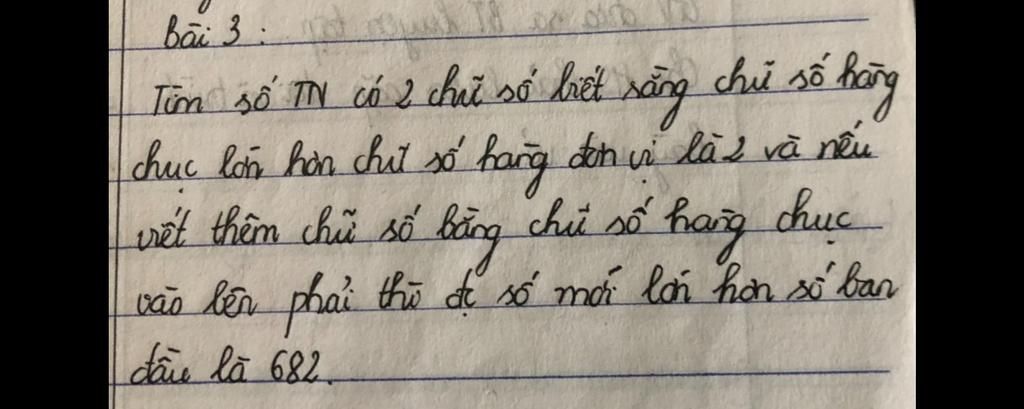 Bài 3 :
Tìm số TN có 2 chữ số biết rằng chữ số hàng
chục lớn hơn chữ số hàng đơn vị là 2 và nếu
viết thêm chữ số bằng chữ số hàng chục
vào bên phải thì đc số mới lớn hơn số ban
đầu là 682.